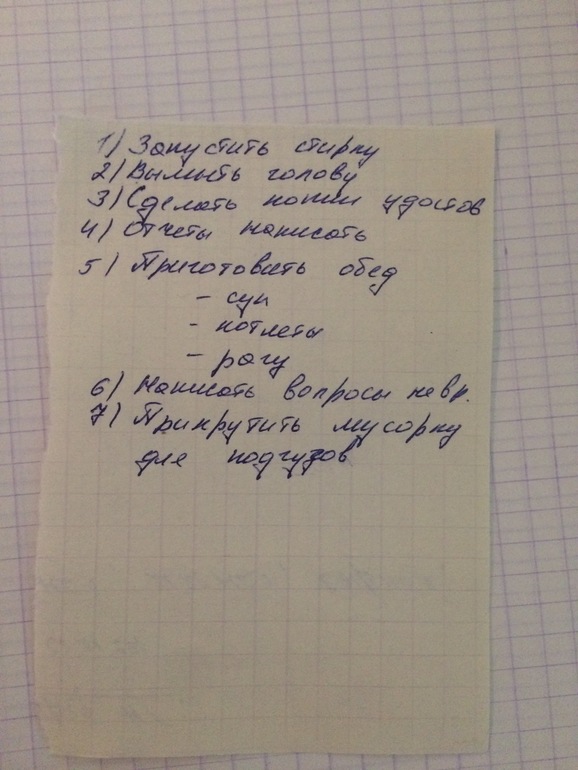 1) Запустить стирку
2) Вымыть голову
3) Сделать копии удостов
4) Отчеты написать
5) Приготовить обед
- суп
- котлеты
- рагу
6) Написать вопросы невр.
7) Прикрутить мусорку
для подгузов